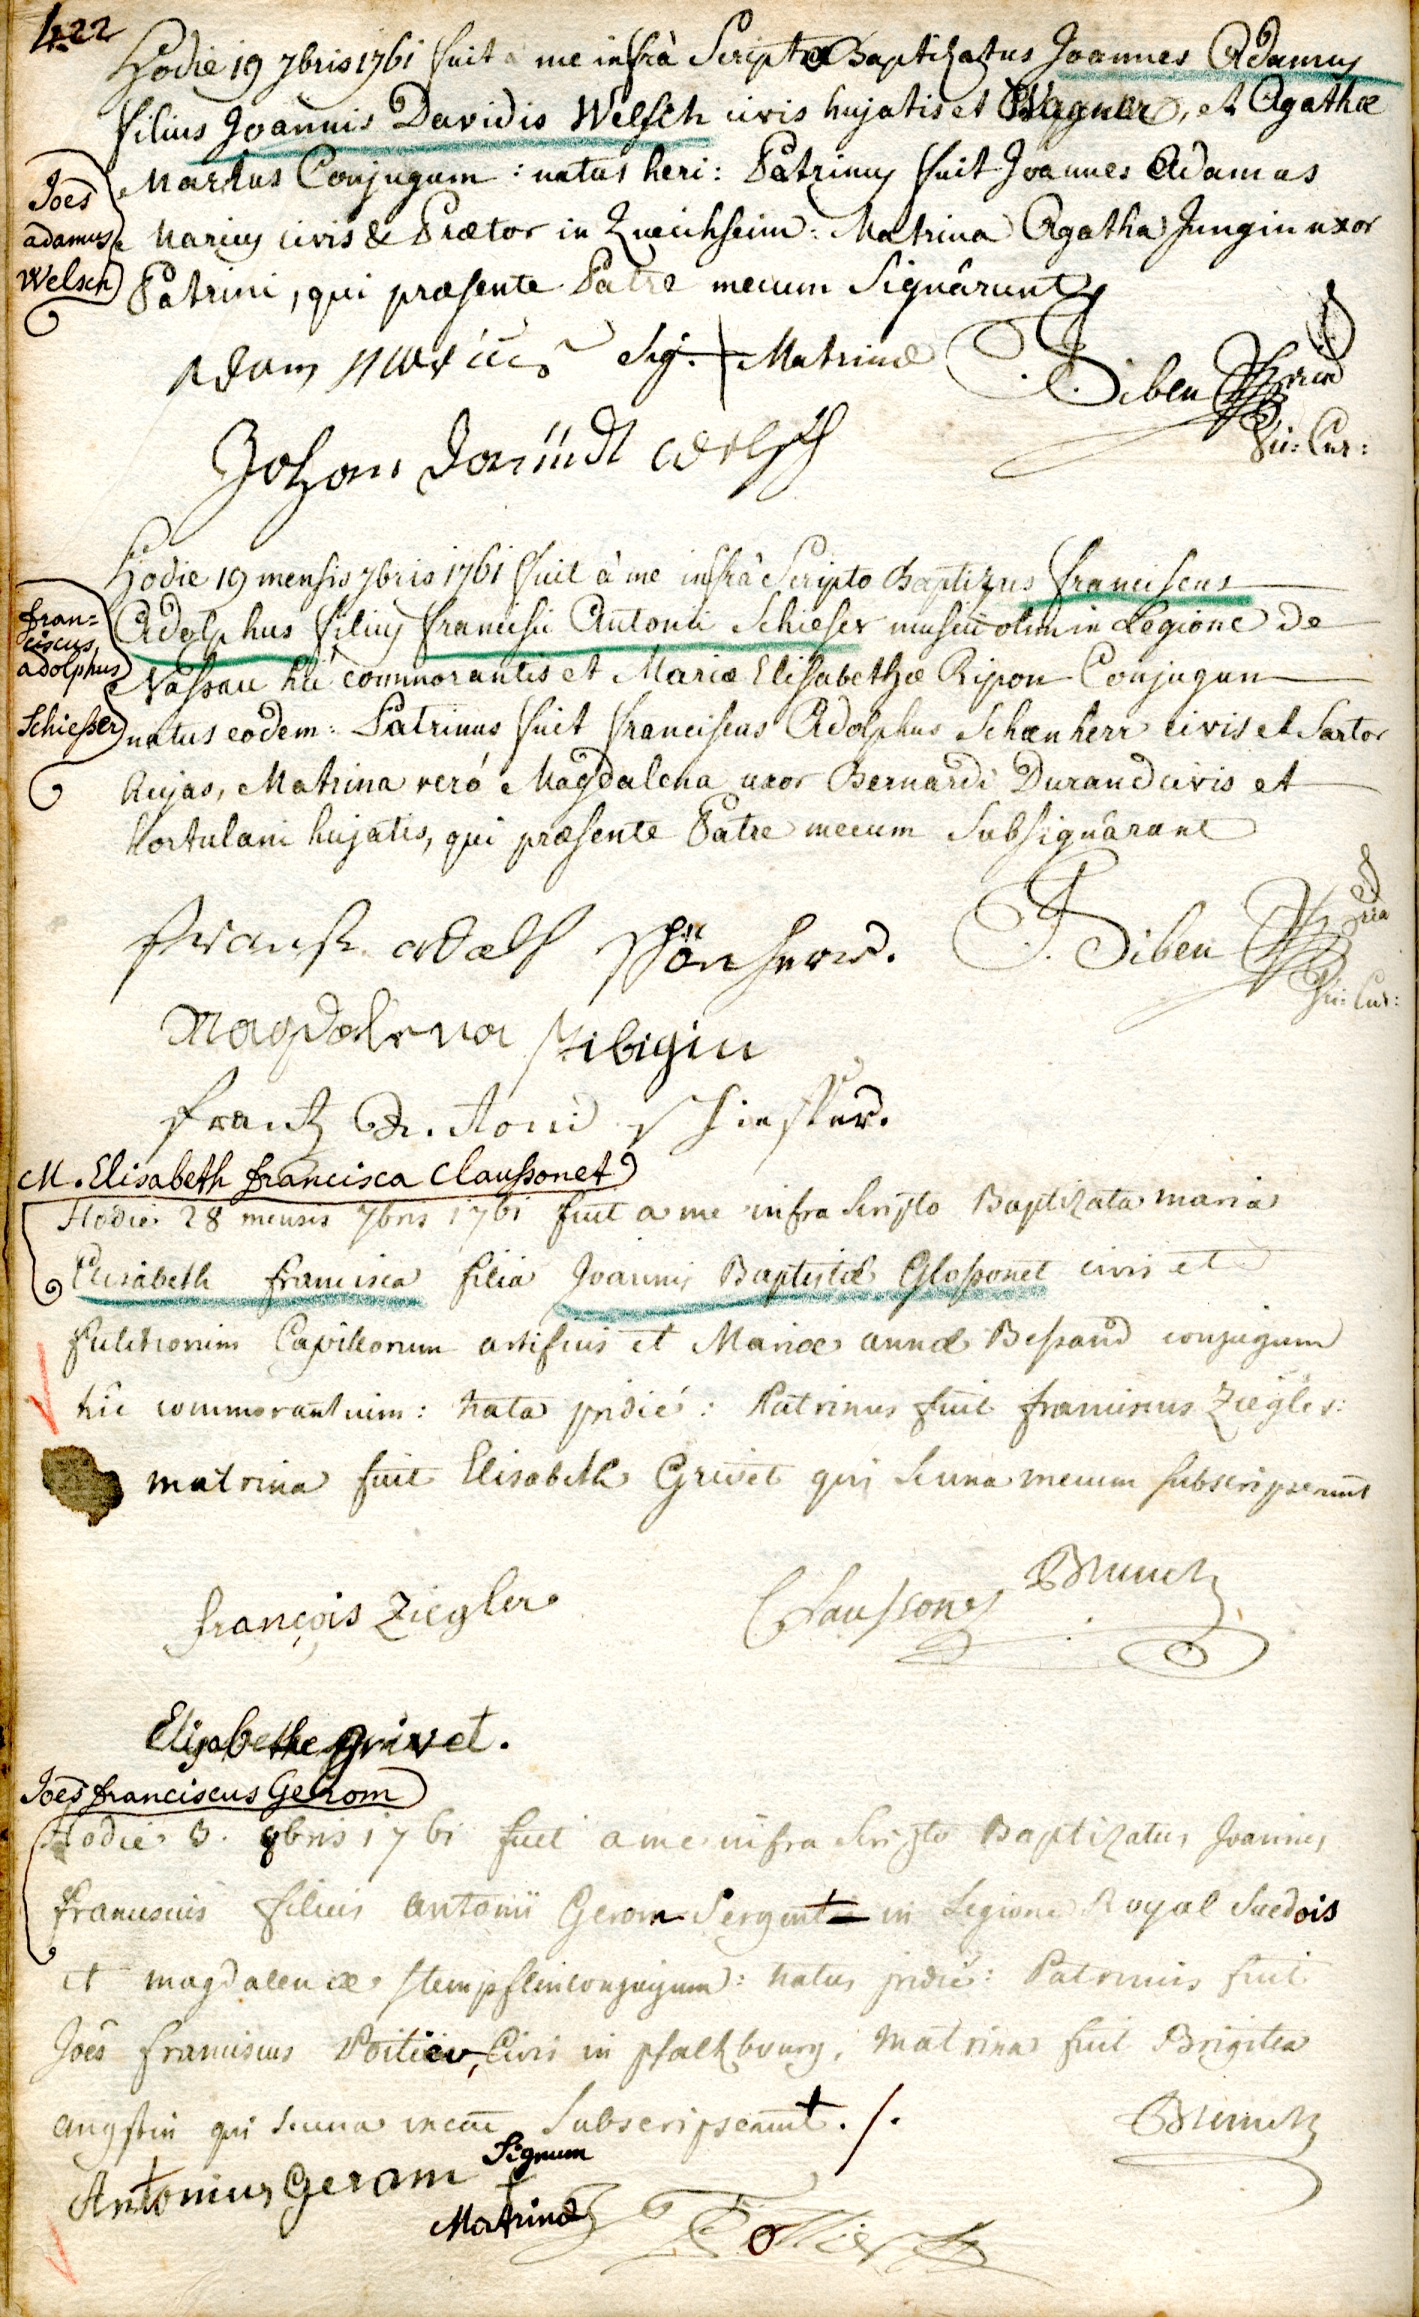 422
Hodie 19 7bris 1761 fuit a me infrà Scripto Baptizatus Joannes Adamus
filius Joannis Davidis Welsch civis hujatis et Wagner, et Agathæ
Marxus Conjugum : natus heri : Patrinus fuit Joannes Adamus
Joes
adamus
Welsch
Marius civis & Prætor in Queichheim : Matrina Agatha Jungin uxor
Patrini, qui præsente Patre mecum Signârunt
Adam Sig. Matrinæ J. Siben
Vic: Cur:
Johan Welsch
Hodie 19 mensis 7bris 1761 fuit à me infrà Scripto Baptizus franciscus
Adolphus filius francisci Antonii Schieser musici olim in Legione de
fran=
ciscus
adolphus
Schießer
Nassau hic commorantis et Mariæ Elisabethæ Ripon Conjugum
natus eodem : Patrinus fuit franciscus Adolphus Schœnherr civis et Sartor
hujas, Matrina verò Magdalena uxor Bernardi Durand civis et
hortulani hujatis, qui præsente Patre mecum Subsignârunt
Schönherr. J. Siben
Vic: Cur:
Magdalena
frantz Antoni Schiesser.
M. Elisabeth francisca Claußonet
Hodie 28 mensis 7bris 1761 fuit a me infra Scripto Baptizata maria
Elisabeth francisca filia Joannis Baptistæ Gloßonet civis et
Pulchrorum Capillorum artificis et Mariæ annæ Beßand conjugum
hic commorantium : nata pridie : Patrinus fuit franciscus Ziegler :
matrina fuit Elisabeth Grivet qui Seuna mecum subscripserunt
françois Ziegler Claussonet
Elisabethe Grivet.
Joes franciscus Gerom
Hodie 3. 8bris 1761 fuit a me infra Scripto Baptizatus Joannes
franciscus filius antonii Gerom Sergent in Legione Royal Suedois
et magdalenæ Stempflin conjugum : natus pridie : Patrinus fuit
Joês franciscus Poitier, Civis in pfaltzbourg, Matrina fuit Brigitta
angstin qui Seuna mecũ Subscripserunt ./.
Antonius Gerom Signum
Matrinæ